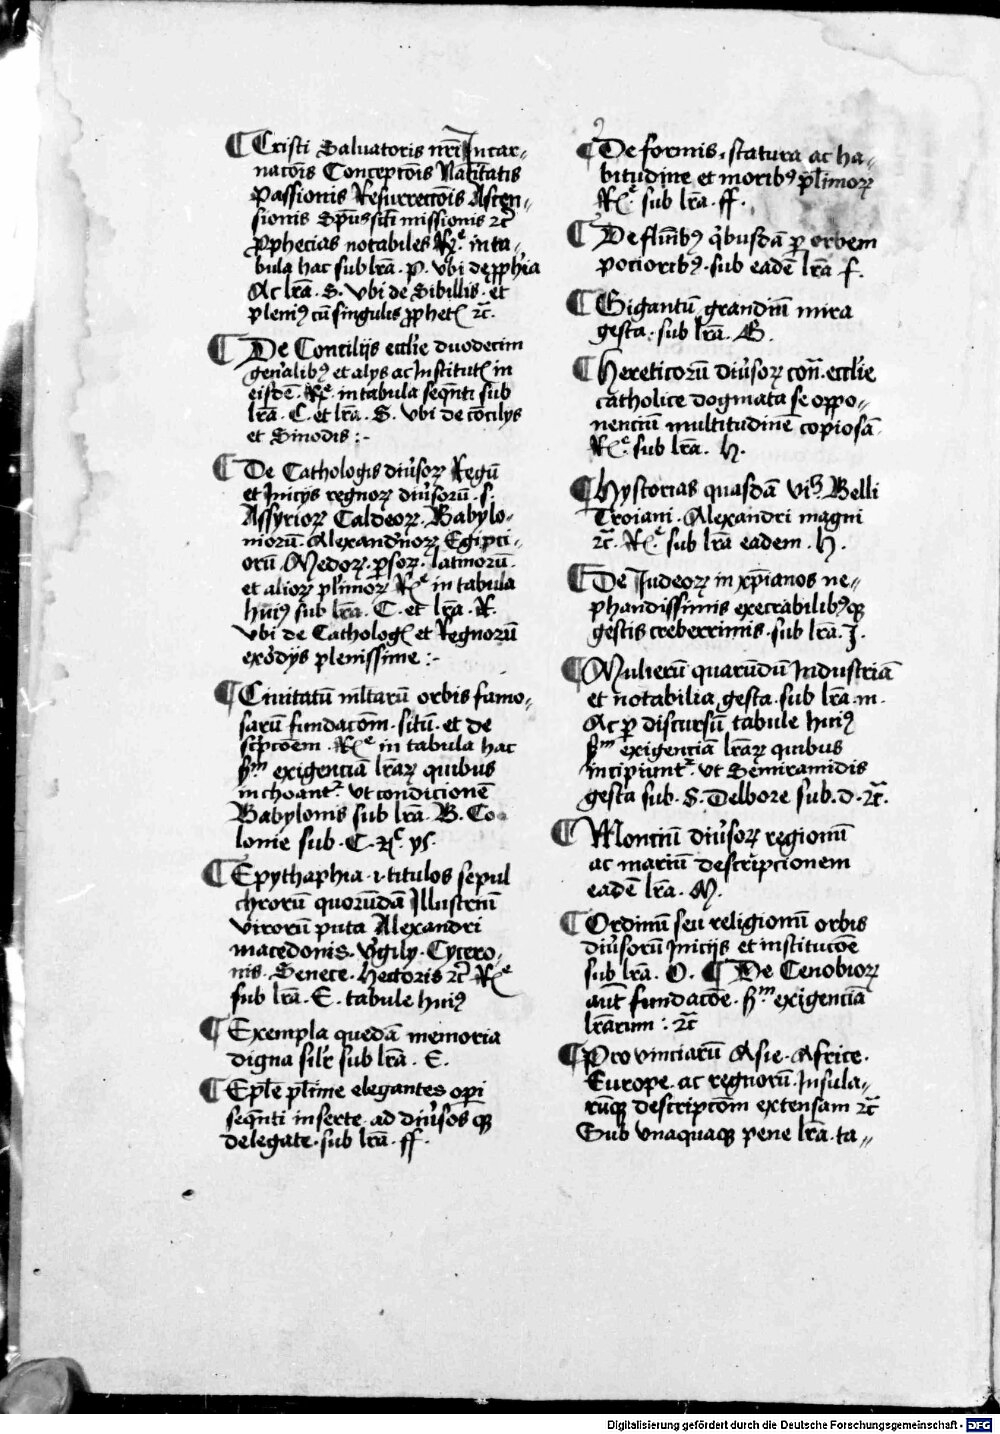 ¶ Cristi Salvatoris nr̄i Incar„
nacōis Conceptōis Natītatis
Passionis Resurrectōis Ascen„
sionis Spūs sc̄ti missionis ⁊c̄
ꝓphecias notabiles Rᵉ in ta„
bula hac sub lr̄a . P . vbi de ꝓph̄ia
Ac lr̄a . S . vbi de Sibillis . et
pleniꝰ cū singulis ꝓphet⁊ ⁊c̄.
¶ De Concilijs eccl̄ie duodecim
gen̄alibꝰ et alys ac Institut⁊ in
eisdē . Rᵉ . in tabula seqn̄ti sub
lr̄a . C . et lr̄a . S . vbi de cōcilys
et Sinodis :-
¶ De Cathologis diūsoꝝ Regū
et Inicys regnoꝝ diūsorū . s .
Assyrioꝝ Caldeoꝝ . Babylo-
niorū . Alexandrinoꝝ Egipci-
orū . Medoꝝ . ꝑsoꝝ . latinorū .
et alioꝝ pl̄imoꝝ Rᵉ in tabula
huiꝰ sub lr̄a . C . et lr̄a . R .
vbi de Catholog⁊ et Regnorū
exordys plenissime :-
¶ Ciuitatū ml̄tarū orbis famo„
sarū fundacōm . sitū . et de
scripcōem . Rᵉ in tabula hac
ẜᵐ exigenciā lr̄aꝝ quibus
inchoant᷑ . vt condicionē
Babylonis sub lr̄a . B . Co
lonie sub . C . ⁊c̄ .
¶ Epythaphia . ⁊ titulos sepul
chrorū quorūdā Illustriū
virorū puta Alexandri
macedonis . v̄gily . Cycero-
nis . Senece . Hectoris ⁊c̄ Rᵉ
sub lr̄a . E . tabule huiꝰ
¶ Exempla quedā memoria
digna silr̄ sub lr̄a . E .
¶ Ep̄le pl̄ime elegantes oꝑi
seqn̄ti inserte . ad diūsos qꝫ
delegate . sub lr̄a . ff .
¶ De formis . statura ac ha„
bitudine et moribꝰ pl̄imoꝝ
Rᵉ . sub lr̄a . ff .
¶ De flu̅ībꝰ qͥbusdā ꝑ orbem
pocioribꝰ . sub eadē lr̄a . f .
¶ Gigantū grandiū mira
gesta . sub lr̄a . G .
¶ Hereticorū diūsoꝝ con̄ . eccl̄ie
catholice dogmata se oppo„
nenciū multitudinē copiosā
Rᵉ . sub lr̄a . H .
¶ Hystorias quasdā vꝫ Belli
Troiani . Alexandri magni
⁊c̄ . Rᵉ sub lr̄a eadem . H .
¶ De Iudeoꝝ in xp̄ianos ne„
phandissimis execrabilibꝰqꝫ
gestis creberrimis . sub lr̄a . I .
¶ Mulierū quarūdū Industriā
et notabilia gesta . sub lr̄a . m .
Ac ꝑ discursū tabule huiꝰ
ẜᵐ exigenciā lr̄aꝝ quibus
incipiunt᷑ . vt Semiramidis
gesta sub . S . Delbore sub . d . ⁊c̄ .
¶ Monciū diūsoꝝ regionū
ac mariū descripcionem
eadē lr̄a . M .
¶ Ordinū seu religionū orbis
diūsorū Inicijs et institucōe
sub lr̄a . O . ¶ De Cenobioꝝ
aut̄ fundacōe . ẜᵐ exigenciā
lr̄arum : ⁊c̄
¶ Prouinciarū Asie . Africe .
Europe . ac regnorū . Insula„
rūqꝫ descripcōm extensam ⁊c̄
Sub vnaquaqꝫ pene lr̄a . ta„
Digitalisierung gefördert durch die Deutsche Forschungsgemeinschaft - DFG